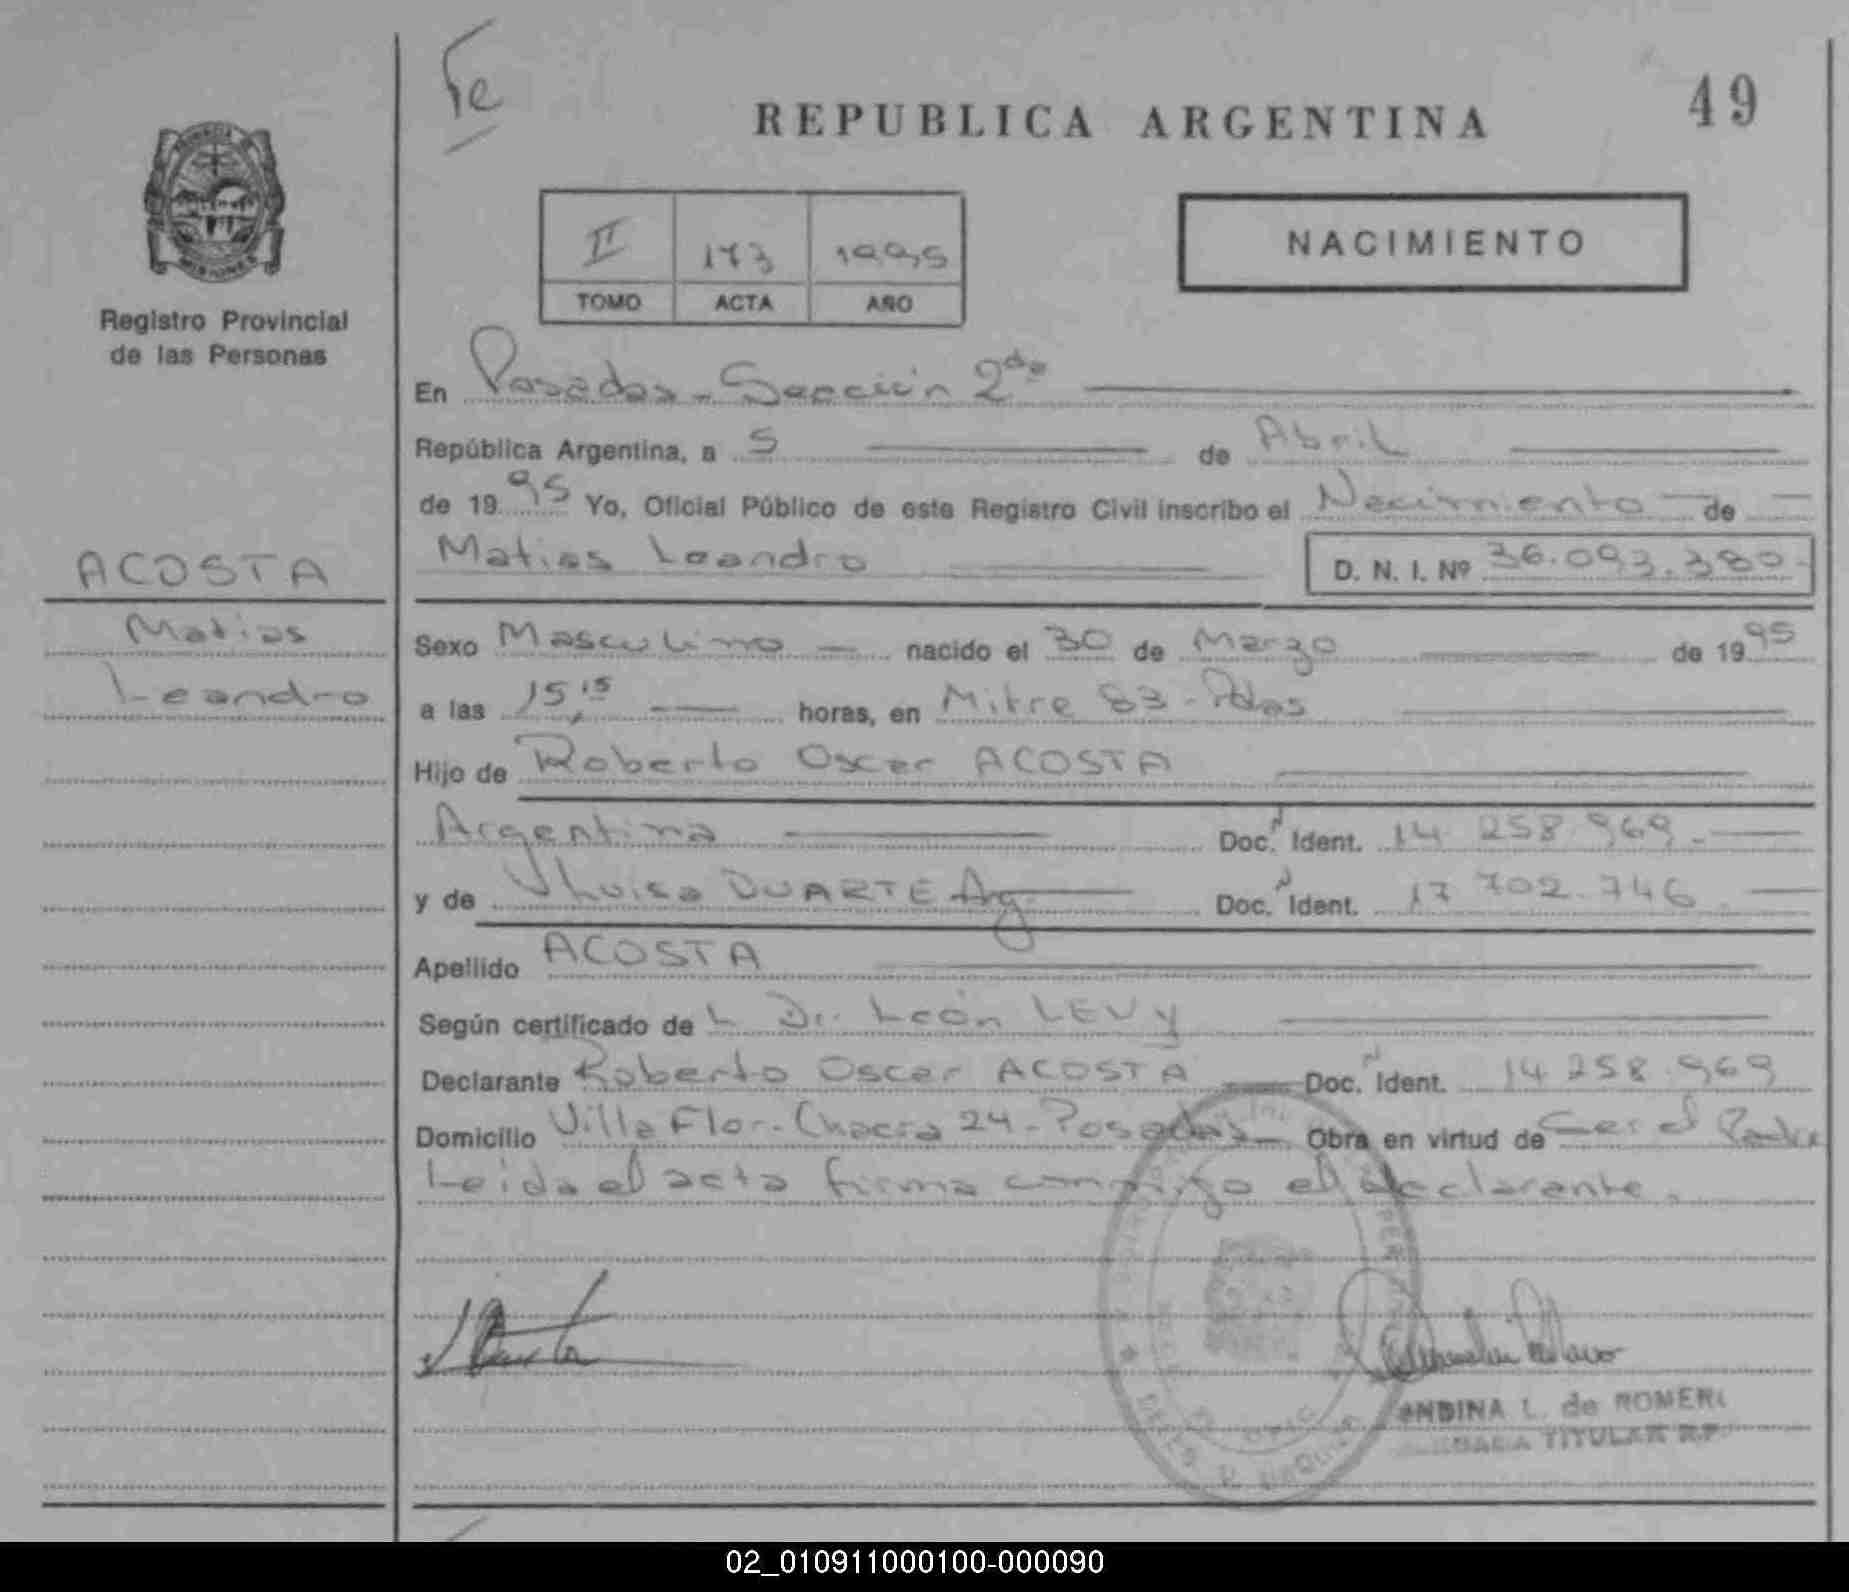 Te
REPUBLICA ARGENTINA
49
II 173 1995
TOMO ACTA AÑO
NACIMIENTO
Registro Provincial
de las Personas
En Posadas - Sección 2da
República Argentina, a 5 de Abril
de 1995 Yo, Oficial Público de este Registro Civil inscribo el Nacimiento de
Matias Leandro D. N. I. Nº 36.093.380-
ACOSTA
Matias
Leandro
Sexo Masculino nacido el 30 de Marzo de 1995
a las 15,15 horas, en Mitre 83 - Pdas
Hijo de Roberto Oscar ACOSTA
Argentina Doc. Ident. 14 258.969.-
y de Luisa DUARTE Arg. Doc. Ident. 17 702.746.
Apellido ACOSTA
Según certificado de L Dr. León LEVY
Declarante Roberto Oscar ACOSTA Doc. Ident. 14 258.969
Domicilio Villa Flor - Chacra 24 - Posadas Obra en virtud de Ser el Padre
Leida el acta firma conmigo el declarante.
L. de ROMERO
TITULAR R.P.
02_010911000100-000090